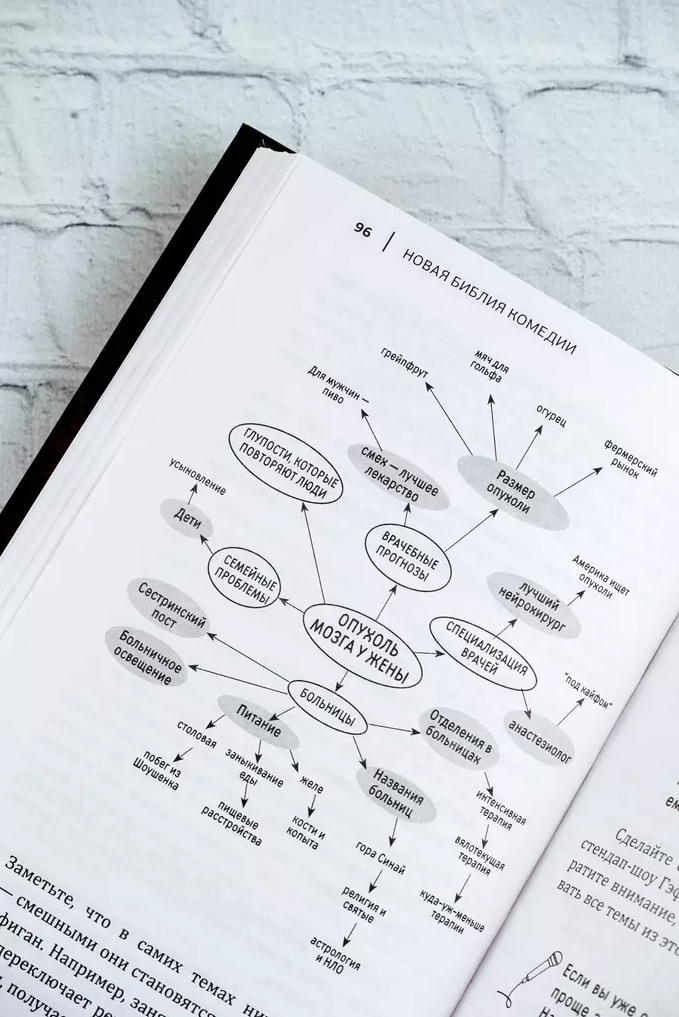 96 | НОВАЯ БИБЛИЯ КОМЕДИИ
грейпфрут
мяч для
гольфа
огурец
фермерский
рынок
Для мужчин —
пиво
ГЛУПОСТИ, КОТОРЫЕ
ПОВТОРЯЮТ ЛЮДИ
смех — лучшее
лекарство
Размер
опухоли
усыновление
Дети
СЕМЕЙНЫЕ
ПРОБЛЕМЫ
ВРАЧЕБНЫЕ
ПРОГНОЗЫ
Америка ищет
опухоли
лучший
нейрохирург
Сестринский
пост
ОПУХОЛЬ
МОЗГА У ЖЕНЫ
СПЕЦИАЛИЗАЦИЯ
ВРАЧЕЙ
Больничное
освещение
"под кайфом"
анастезиолог
БОЛЬНИЦЫ
Питание
Отделения в
больницах
столовая
побег из
Шоушенка
заныкивание
еды
пищевые
расстройства
желе
кости и
копыта
Названия
больниц
гора Синай
религия и
святые
астрология
и НЛО
интенсивная
терапия
вялотекущая
терапия
куда-уж-меньше
терапии
Заметьте, что в самих темах
— смешными они становятся
фиган. Например,
переключает
Сделайте
стендап-шоу
ратите внимание,
вать все темы из
Если вы уже
проще